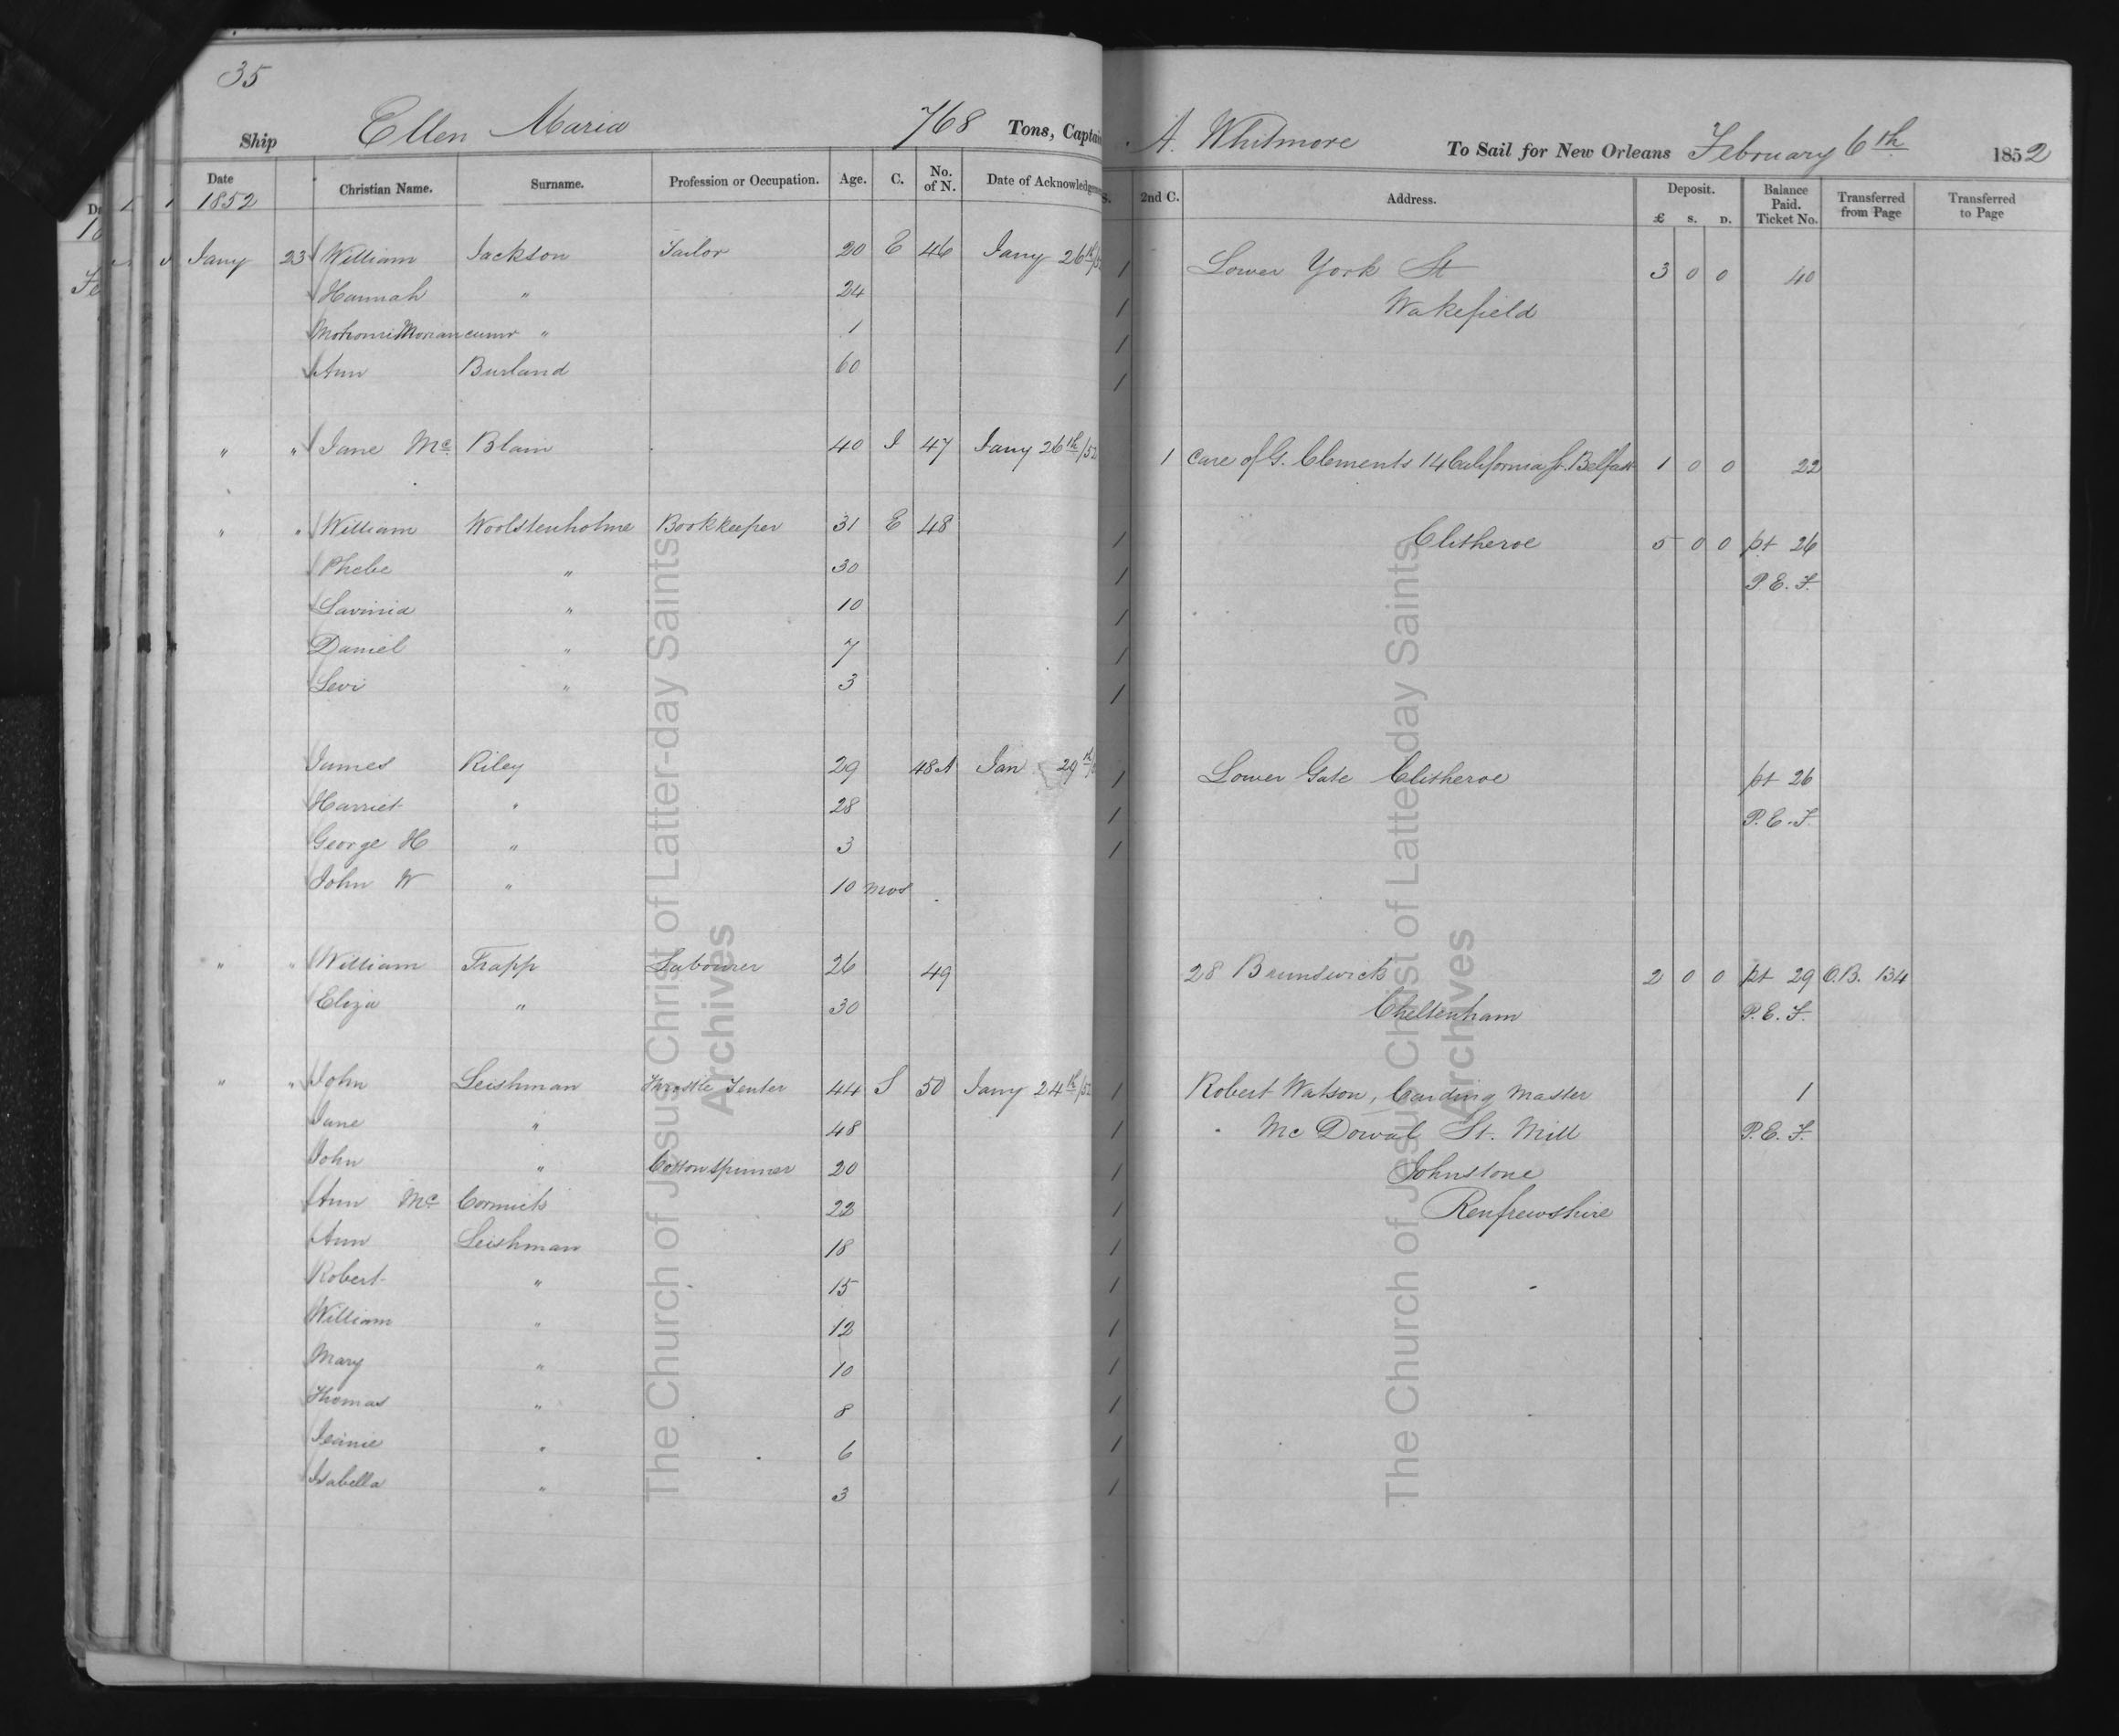 35
Ship Ellen Maria 768 Tons, Captain A. Whitmore To Sail for New Orleans February 6th 1852
Date 1852 Christian Name. Surname. Profession or Occupation. Age. C. No. of N. Date of Acknowledgment S. 2nd C. Address. Deposit. £ S. D. Balance Paid. Ticket No. Transferred from Page Transferred to Page
Jany 23 William Jackson Tailor 20 E 46 Jany 26th/52 1 Lower York St 3 0 0 40
Hannah " 24 1 Wakefield
Moriancumr " 1 1
Ann Burland 60 1
" " Jane Mc Blain 40 I 47 Jany 26th/52 1 Care of G. Clements 14 California St. Belfast 1 0 0 22
" " William Woolstenholme Bookkeeper 31 E 48 1 Clitheroe 5 0 0 pt 26
Phebe " 30 1 P.E.F.
Lavinia " 10 1
Daniel " 7 1
Levi " 3 1
James Riley 29 48A Jan 29th 1 Lower Gate Clitheroe pt 26
Harriet " 28 1 P.E.F.
George H " 3 1
John W " 10 mos
" " William Trapp Labourer 26 49 28 Brunswick 2 0 0 pt 29 O.B. 134
Eliza " 30 Cheltenham P.E.F.
" " John Leishman Throstle Tenter 44 S 50 Jany 24th/52 1 Robert Watson, Carding Master 1
Jane " 48 1 Mc Dowal St. Mill P.E.F.
John " Cotton Spinner 20 1 Johnstone
Ann Mc Cormick 22 1 Renfrewshire
Ann Leishman 18 1
Robert " 15 1
William " 12 1
Mary " 10 1
Thomas " 8 1
Jeanie " 6 1
Isabella " 3 1
The Church of Jesus Christ of Latter-day Saints
Archives
The Church of Jesus Christ of Latter-day Saints
Archives